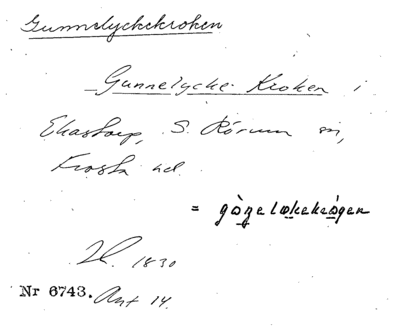 Gunnelyckekroken
Gunnelycke Kroken i
Ekastorp, S. Rörum sn,
Frosta hd.
= gònelækekrògen
1830
Nr 6743. Ant 14.